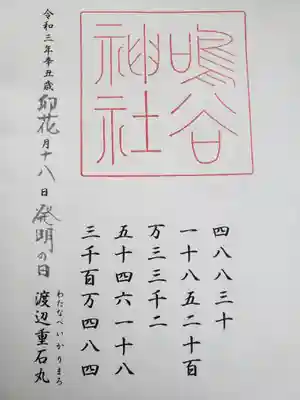 鳴谷
神社
四八八三十
一十八五二十百
万三三千二
五十四六一十八
三千百万四八四
令和三年辛丑歳卯花月十八日 發明の日 渡辺重石丸
わたなべいかりまろ